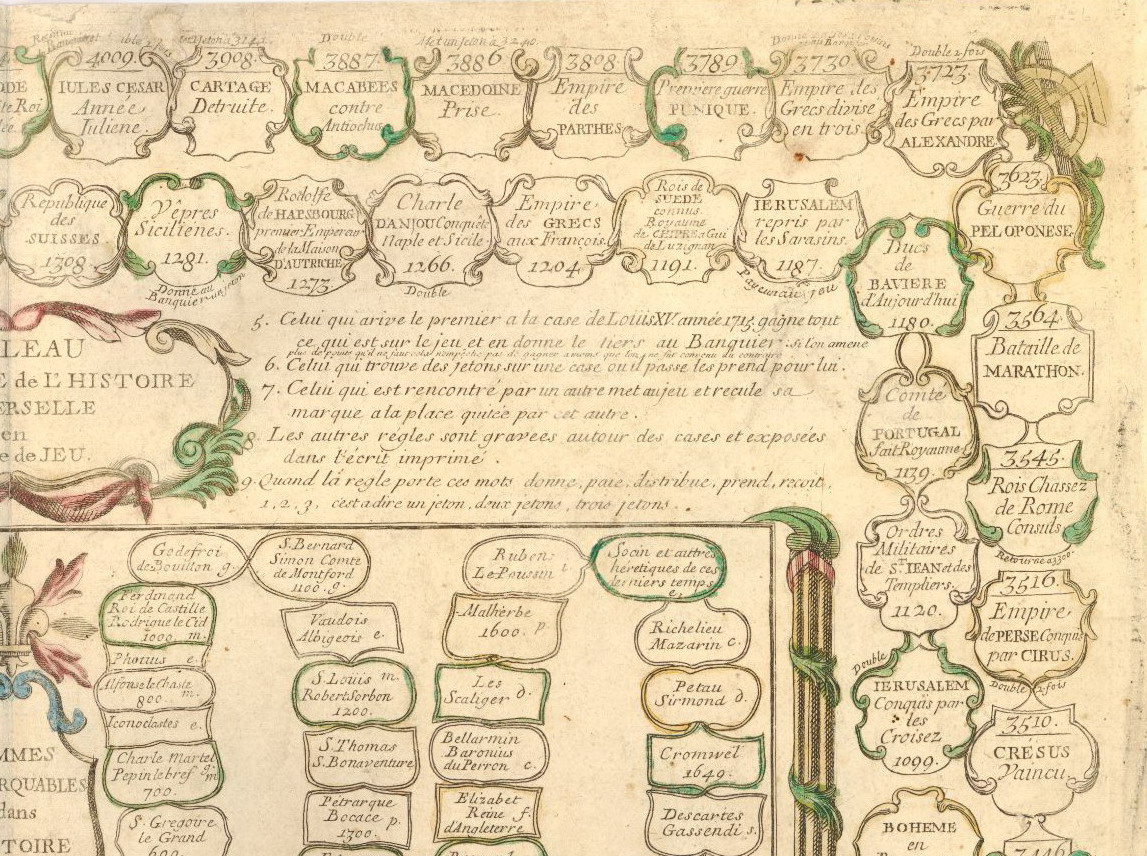 4009.
IULES CESAR
Année
Iuliene.
3908.
CARTAGE
Detruite.
Double
3887.
MACABEES
contre
Antiochus
3886
MACEDOINE
Prise.
3808.
Empire
des
PARTHES
3789.
Premiere guerre
PUNIQUE.
3730.
Empire des
Grecs divisé
en trois.
Double 2 fois
3723.
Empire
des Grecs par
ALEXANDRE
3623.
Guerre du
PELOPONESE.
3564.
Bataille de
MARATHON.
3545.
Rois Chassez
de Rome
Consuls
Retourne a 3300.
3516.
Empire
de PERSE Conquis
par CIRUS.
Double 2 fois
3510.
CRESUS
Vaincu.
3446
Republique
des
SUISSES.
1308
Vêpres
Sicilienes.
1281.
Donne au
Banquier un jeton
Rodolfe
de HAPSBOURG
premier Empereur
de la Maison
D'AUTRICHE
1273
Charle
DANJOU Conquête
Naple et Sicile
1266.
Double
Empire
des GRECS
aux François.
1204
Rois de
SUEDE
connus
Royaume
de CHIPRE a Gui
de Luzignan
1191.
IERUSALEM
repris par
les Sarasins.
1187.
Paye un au jeu
Ducs
de
BAVIERE
d'Aujourd'hui
1180.
Comté
de
PORTUGAL
fait Royaume
1139.
Ordres
Militaires
de St. IEAN et des
Templiers.
1120.
Double
IERUSALEM
Conquis par
les
Croisez
1099.
BOHEME
en
LEAU
de L'HISTOIRE
ERSELLE
en
e de JEU.
5. Celui qui arive le premier a la case de Louis XV. année 1715. gagne tout
ce qui est sur le jeu et en donne le tiers au Banquier. Si l'on amene
6. Celui qui trouve des jetons sur une case ou il passe les prend pour lui.
7. Celui qui est rencontré par un autre met au jeu et recule sa
marque a la place quitée par cet autre.
8. Les autres régles sont gravées autour des cases et exposées
dans l'écrit imprimé.
9. Quand la regle porte ces mots donne, paie, distribue, prend, reçoit,
1, 2, 3, c'est a dire un jeton, deux jetons, trois jetons.
Godefroi
de Bouillon g.
S. Bernard
Simon Comte
de Montford
1100. g.
Ferdinand
Roi de Castille
Rodrigue le Cid
1000. m.
Vaudois
Albigeois e.
Photius e.
Alfonse le Chaste
800. m.
S. Louis m.
Robert Sorbon
1200.
Iconoclastes e.
Charle Martel
Pepin le bref
700.
S. Thomas
S. Bonaventure
S. Gregoire
le Grand
600.
Pétrarque
Bocace p.
1300.
Rubens
Le Poussin
Socin et autres
héretiques de ces
derniers temps
e.
Malherbe
1600. p.
Richelieu
Mazarin c.
Les
Scaliger d.
Petau
Sirmond d.
Bellarmin
Baronius
du Perron c.
Cromwel
1649.
Elizabet
Reine f.
d'Angleterre
Descartes
Gassendi s.
MMES
RQUABLES
dans
TOIRE